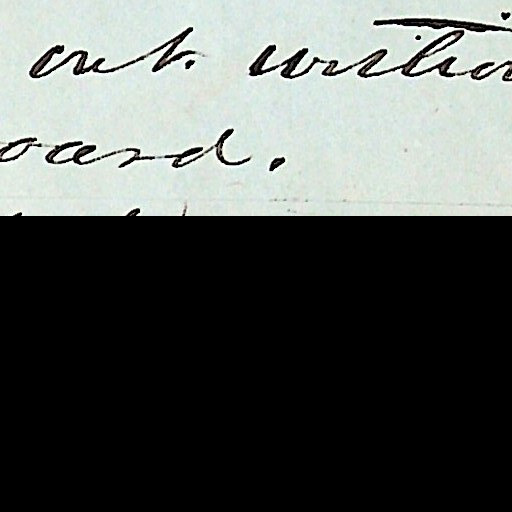 out. witho
oard.